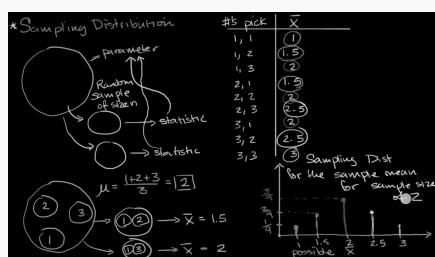 *Sampling Distribution
parameter
Random
sample
of size n
statistic
statistic
μ = (1+2+3)/3 = 2
2
3
1
1 2 → x̄ = 1.5
1 3 → x̄ = 2
#'s pick x̄
1, 1 1
1, 2 1.5
1, 3 2
2, 1 1.5
2, 2 2
2, 3 2.5
3, 1 2
3, 2 2.5
3, 3 3
Sampling Dist
for the sample mean
for sample size
2
1 1.5 2 2.5 3
possible x̄